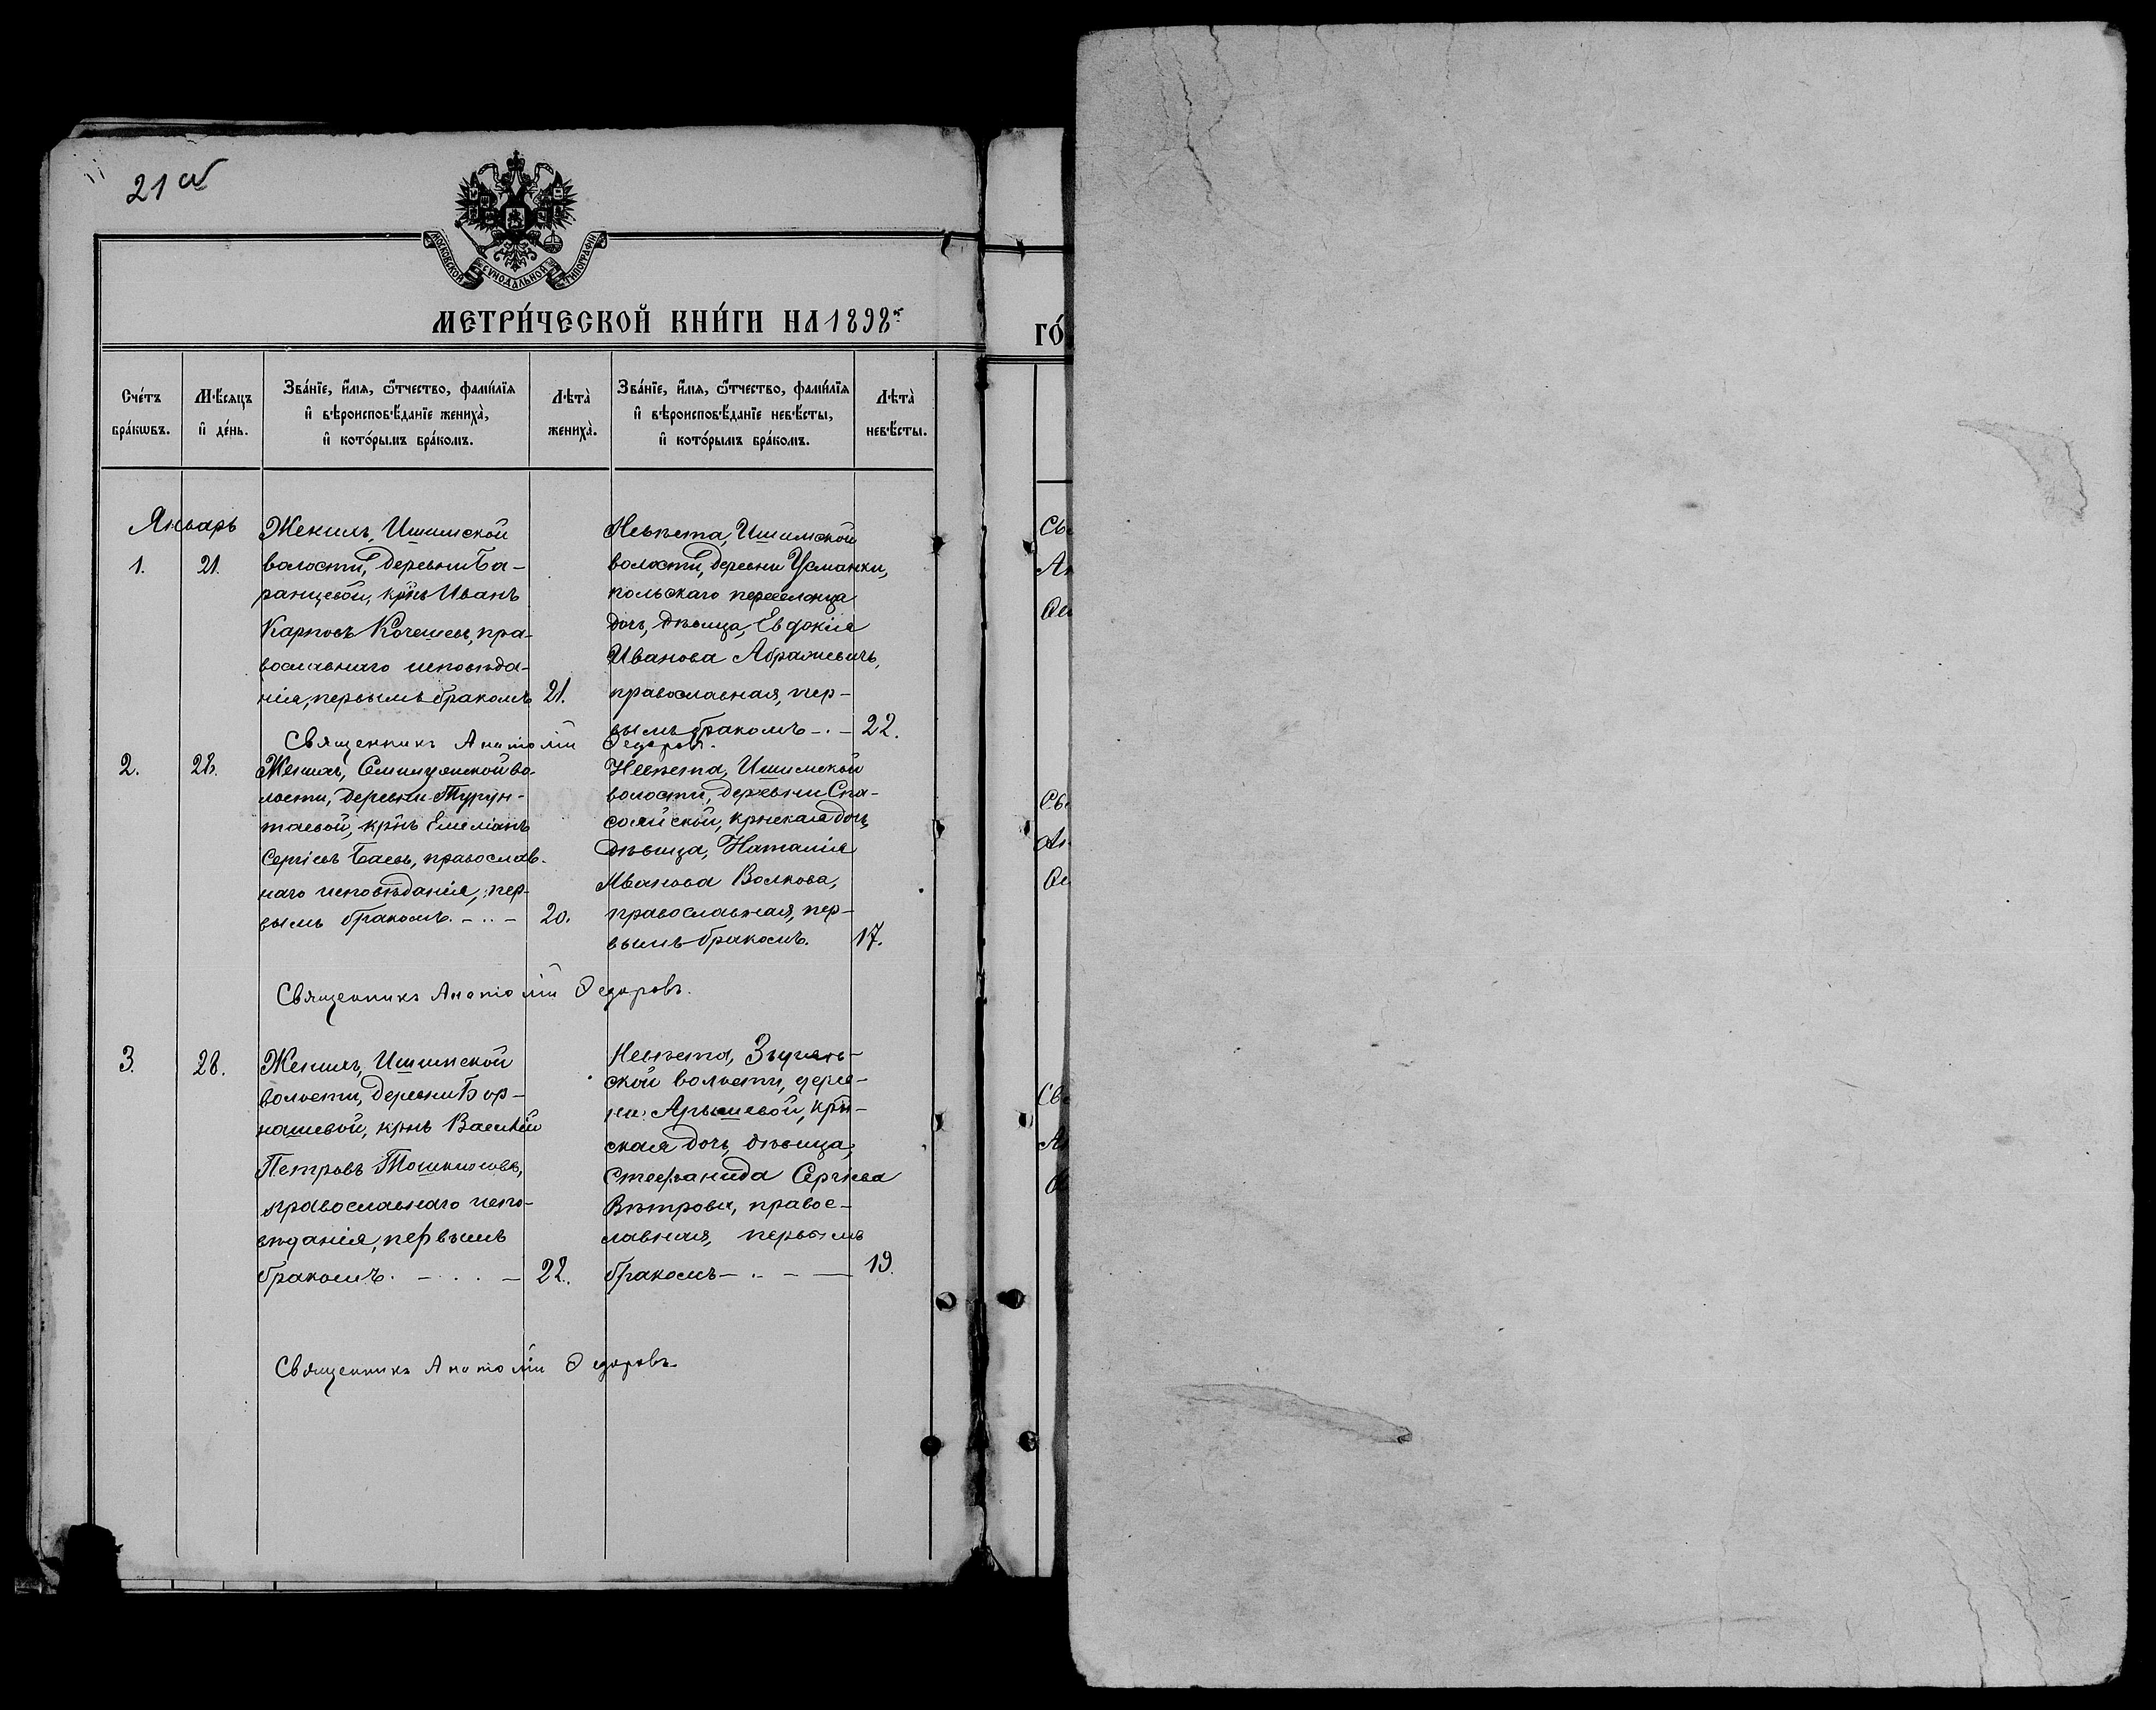 21 об
МОСКОВСКОЙ СѴНОДАЛЬНОЙ ТИПОГРАФІИ
МЕТРИ́ЧЕСКОЙ КНИ́ГИ НА 1898 г.
ГО́
Сче́тъ бра́кѡвъ.
М҃ѣсяцъ и҆ де́нь.
Зва́нїе, и҆́мя, ѻ҆́тчество, фами́лїя
и҆ вѣроисповѣ́данїе жениха̀,
и҆ кото́рымъ бра́комъ.
Лѣта̀ жениха̀.
Зва́нїе, и҆́мя, ѻ҆́тчество, фами́лїя
и҆ вѣроисповѣ́данїе невѣ́сты,
и҆ кото́рымъ бра́комъ.
Лѣта̀ невѣ́сты.
Январь
1.
21.
Женихъ, Ишимской
волости, деревни Ба-
ранцевой, крнъ Иванъ
Карповъ Кочешевъ, пра-
вославнаго исповѣда-
нія, первымъ бракомъ
21.
Невѣста, Ишимской
волости, деревни Усманки,
польскаго переселенца
дочь, дѣвица, Евдокія
Иванова Абрамевичъ,
православная, пер-
вымъ бракомъ
22.
Священникъ Анатолій Федоровъ.
2.
28.
Женихъ, во-
лости, деревни Турун-
таевой, крнъ Емеліанъ
Сергіевъ Баевъ, православ-
наго исповѣданія, пер-
вымъ бракомъ.
20.
Невѣста, Ишимской
волости, деревни Спа-
ской, крнская дочь,
дѣвица, Наталія
Иванова Волкова,
православная, пер-
вымъ бракомъ.
17.
Священникъ Анатолій Федоровъ.
3.
28.
Женихъ, Ишимской
волости, деревни Бор-
нашевой, крнъ Василій
Петровъ
православнаго испо-
вѣданія, первымъ
бракомъ.
22.
Невѣста,
ской волости, дерев-
ни Арышевой, крн-
ская дочь, дѣвица,
Стефанида Сергіева
Вѣтрова, правос-
лавная, первымъ
бракомъ
19.
Священникъ Анатолій Федоровъ.